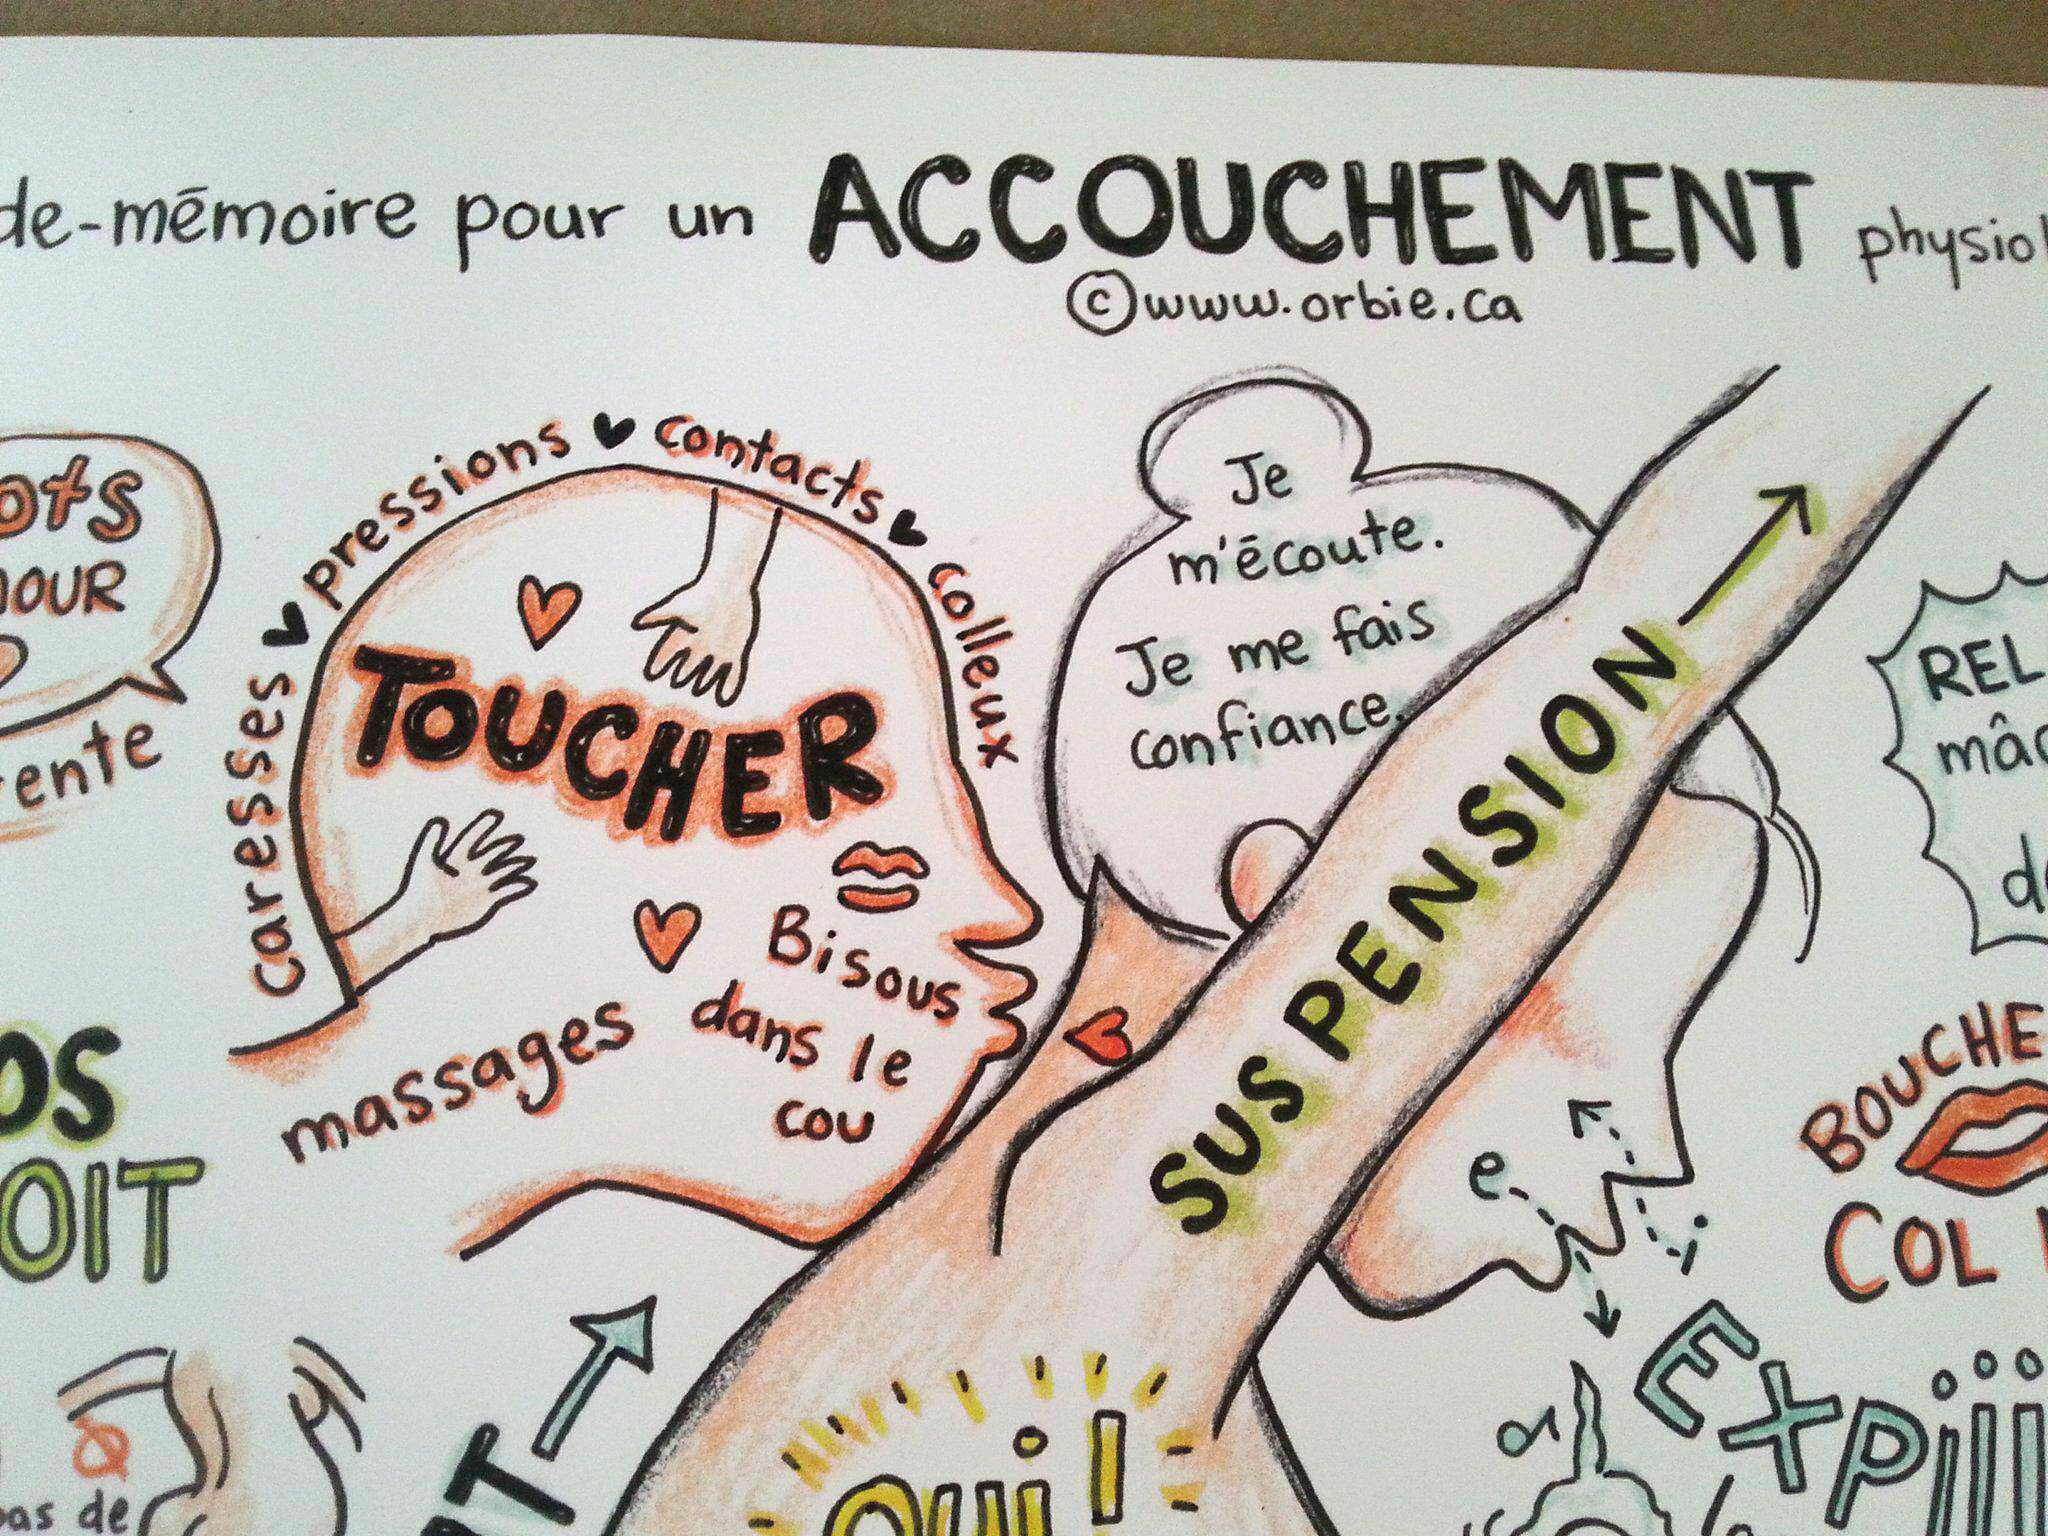 de-mémoire pour un ACCOUCHEMENT physiol
©www.orbie.ca
ots
OUR
ente
caresses ♥ pressions ♥ contacts ♥ colleux
TOUCHER
Bisous
dans le
cou
massages
Je
m'écoute.
Je me fais
confiance.
SUSPENSION
REL
mâc
d
OS
OIT
BOUCHE
COL
e
i
EXPiii
oui!
pas de